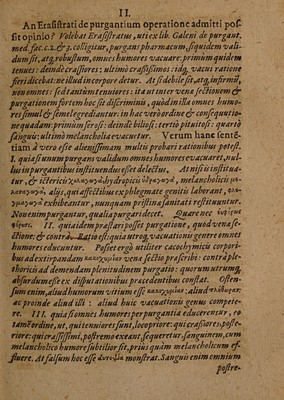 II.
An Erasistrati de purgantium operatione admitti pos-
sit opinio? Volebat Erasistratus, uti ex lib. Galeni de purgant.
med. fac. c. 2. & 3. colligitur, purgans pharmacum, siquidem vali-
dum sit, atq́; robustum, omnes humores vacuare: primùm quidem
tenues: deinde crassiores: ultimò crassissimos: idq́; vacui ratione
fieri dicebat: ne illud in corpore detur. At si debile sit, atq́; infirmũ,
non omnes: sed tantùm tenuiores: ita ut inter venæ sectionem &
purgationem fortem hoc sit discriminis, quòd in illa omnes humo-
res simul & semel egrediantur: in hac verò ordine & consequutio-
ne quadam: primùm serosi: deinde biliosi: tertiò pituitosi: quartò
sanguis: ultimò melancholia evacuetur. Verum hanc sentē-
tiam à vero esse alienissimam multis probari rationibus potest.
I. quia si unum purgans validum omnes humores evacuaret, nul-
lus in purgantibus instituendis esset delectus. At nisi is institua-
tur, & ictericis χολαγωγὰ hydropicis ὑδραγωγὰ, melancholicis
aliis, qui affectibus ex phlegmate genitis laborant,
exhibeantur, nunquam pristinæ sanitati restituuntur.
Non enim purgantur, qualia purgari decet. Quare nec
II. quia idem præstari posset purgatione, quod venæ se-
ctione: & contrà. Ratio est: quia utroq́; vacuationis genere omnes
humores educuntur. Posset ergò utiliter cacochymicis corpori-
bus ad extirpandam κακοχυμίαν venæ sectio præscribi: contrà ple-
thoricis ad demendam plenitudinem purgatio: quorum utrumq́;
absurdum esse ex disputationibus præcedentibus constat. Osten-
sum enim, aliud humorum vitium esse κακοχυμίαν: aliud πληθώραν:
ac proinde aliud illi: aliud huic vacuationis genus compete-
re. III. quia si omnes humores per purgantia educerentur, eo
tamē ordine, ut, qui tenniores sunt, loco priore: qui crassiores, poste-
riore: qui crassissimi, postremo exeant, sequeretur, sanguinem, cum
melancholico humore subtilior sit, priùs quàm melancholicum ef-
fluere. At falsum hoc esse αὐτοψία monstrat. Sanguis enim omnium
postre-